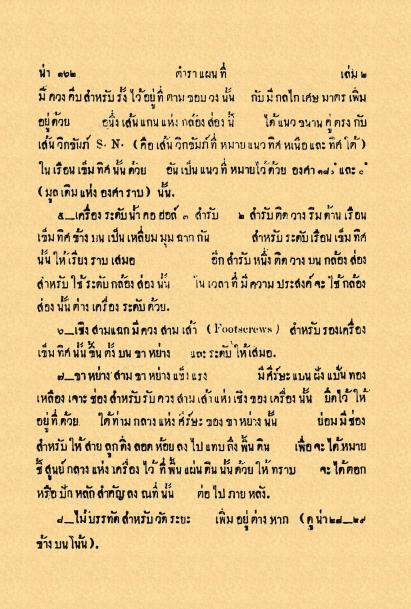 น่า ๑๖๒ ตำรา แผน ที่ เล่ม ๒
มี ควง คีบ สำหรับ รั้ง ไว้ อยู่ ที่ ตาม ขอบ วง นั้น กับ มี กลไก เศษ มาตร เพิ่ม
อยู่ ด้วย อนึ่ง เส้น แกน แห่ง กล้อง ส่อง นี้ ได้ แนว ขนาน คู่ ตรง กับ
เส้น วิกขัมภ์ S. N. (คือ เส้น วิกขัมภ์ ที่ หมาย แนว ทิศ หนือ และ ทิศ ใต้)
ใน เรือน เข็ม ทิศ นั้น ด้วย อัน เป็น แนว ที่ หมาย ไว้ ด้วย องศา ๑๘๐° และ ๐°
(มูล เดิม แห่ง องศา ราบ) นั้น.
๕—เครื่อง ระดับ น้ำ คอ ฮอล์ ๓ สำรับ ๒ สำรับ ติด วาง ริม ด้าน เรือน
เข็ม ทิศ ข้าง บน เป็น เหลี่ยม มุม ฉาก กัน สำหรับ ระดับ เรือน เข็ม ทิศ
นั้น ให้ เรียง ราบ เสมอ อีก สำรับ หนึ่ง ติด วาง บน กล้อง ส่อง
สำหรับ ใช้ ระดับ กล้อง ส่อง นั้น ใน เวลา ที่ มี ความ ประสงค์ จะ ใช้ กล้อง
ส่อง นั้น ต่าง เครื่อง ระดับ ด้วย.
๖—เชิง สาม แฉก มี ควง สาม เส้า (Footscrews) สำหรับ รอง เครื่อง
เข็ม ทิศ นั้น ขึ้น ตั้ง บน ขา หย่าง และ ระดับ ให้ เสมอ.
๗—ขา หย่าง สาม ขา หย่าง แข็ง แรง มี ศีร์ษะ แบน ฝัง แป้น ทอง
เหลือง เจาะ ช่อง สำหรับ รับ ควง สาม เส้า แห่ง เชิง ของ เครื่อง นั้น ยึด ไว้ ให้
อยู่ ที่ ด้วย. ใต้ ท่าม กลาง แห่ง ศีร์ษะ ของ ขา หย่าง นั้น ย่อม มี ช่อง
สำหรับ ให้ สาย ลูก ดิ่ง ลอด ห้อย ลง ไป แทบ ถึง พื้น ดิน เพื่อ จะ ได้ หมาย
ชี้ สูนย์ กลาง แห่ง เครื่อง ไว้ ที่ พื้น แผ่น ดิน นั้น ด้วย ให้ ทราบ จะ ได้ ตอก
หรือ ปัก หลัก สำคัญ ลง ณที่ นั้น ต่อ ไป ภาย หลัง.
๘—ไม้ บรรทัด สำหรับ วัด ระยะ เพิ่ม อยู่ ต่าง หาก (ดู น่า ๒๘—๒๙
ข้าง บน โน้น).